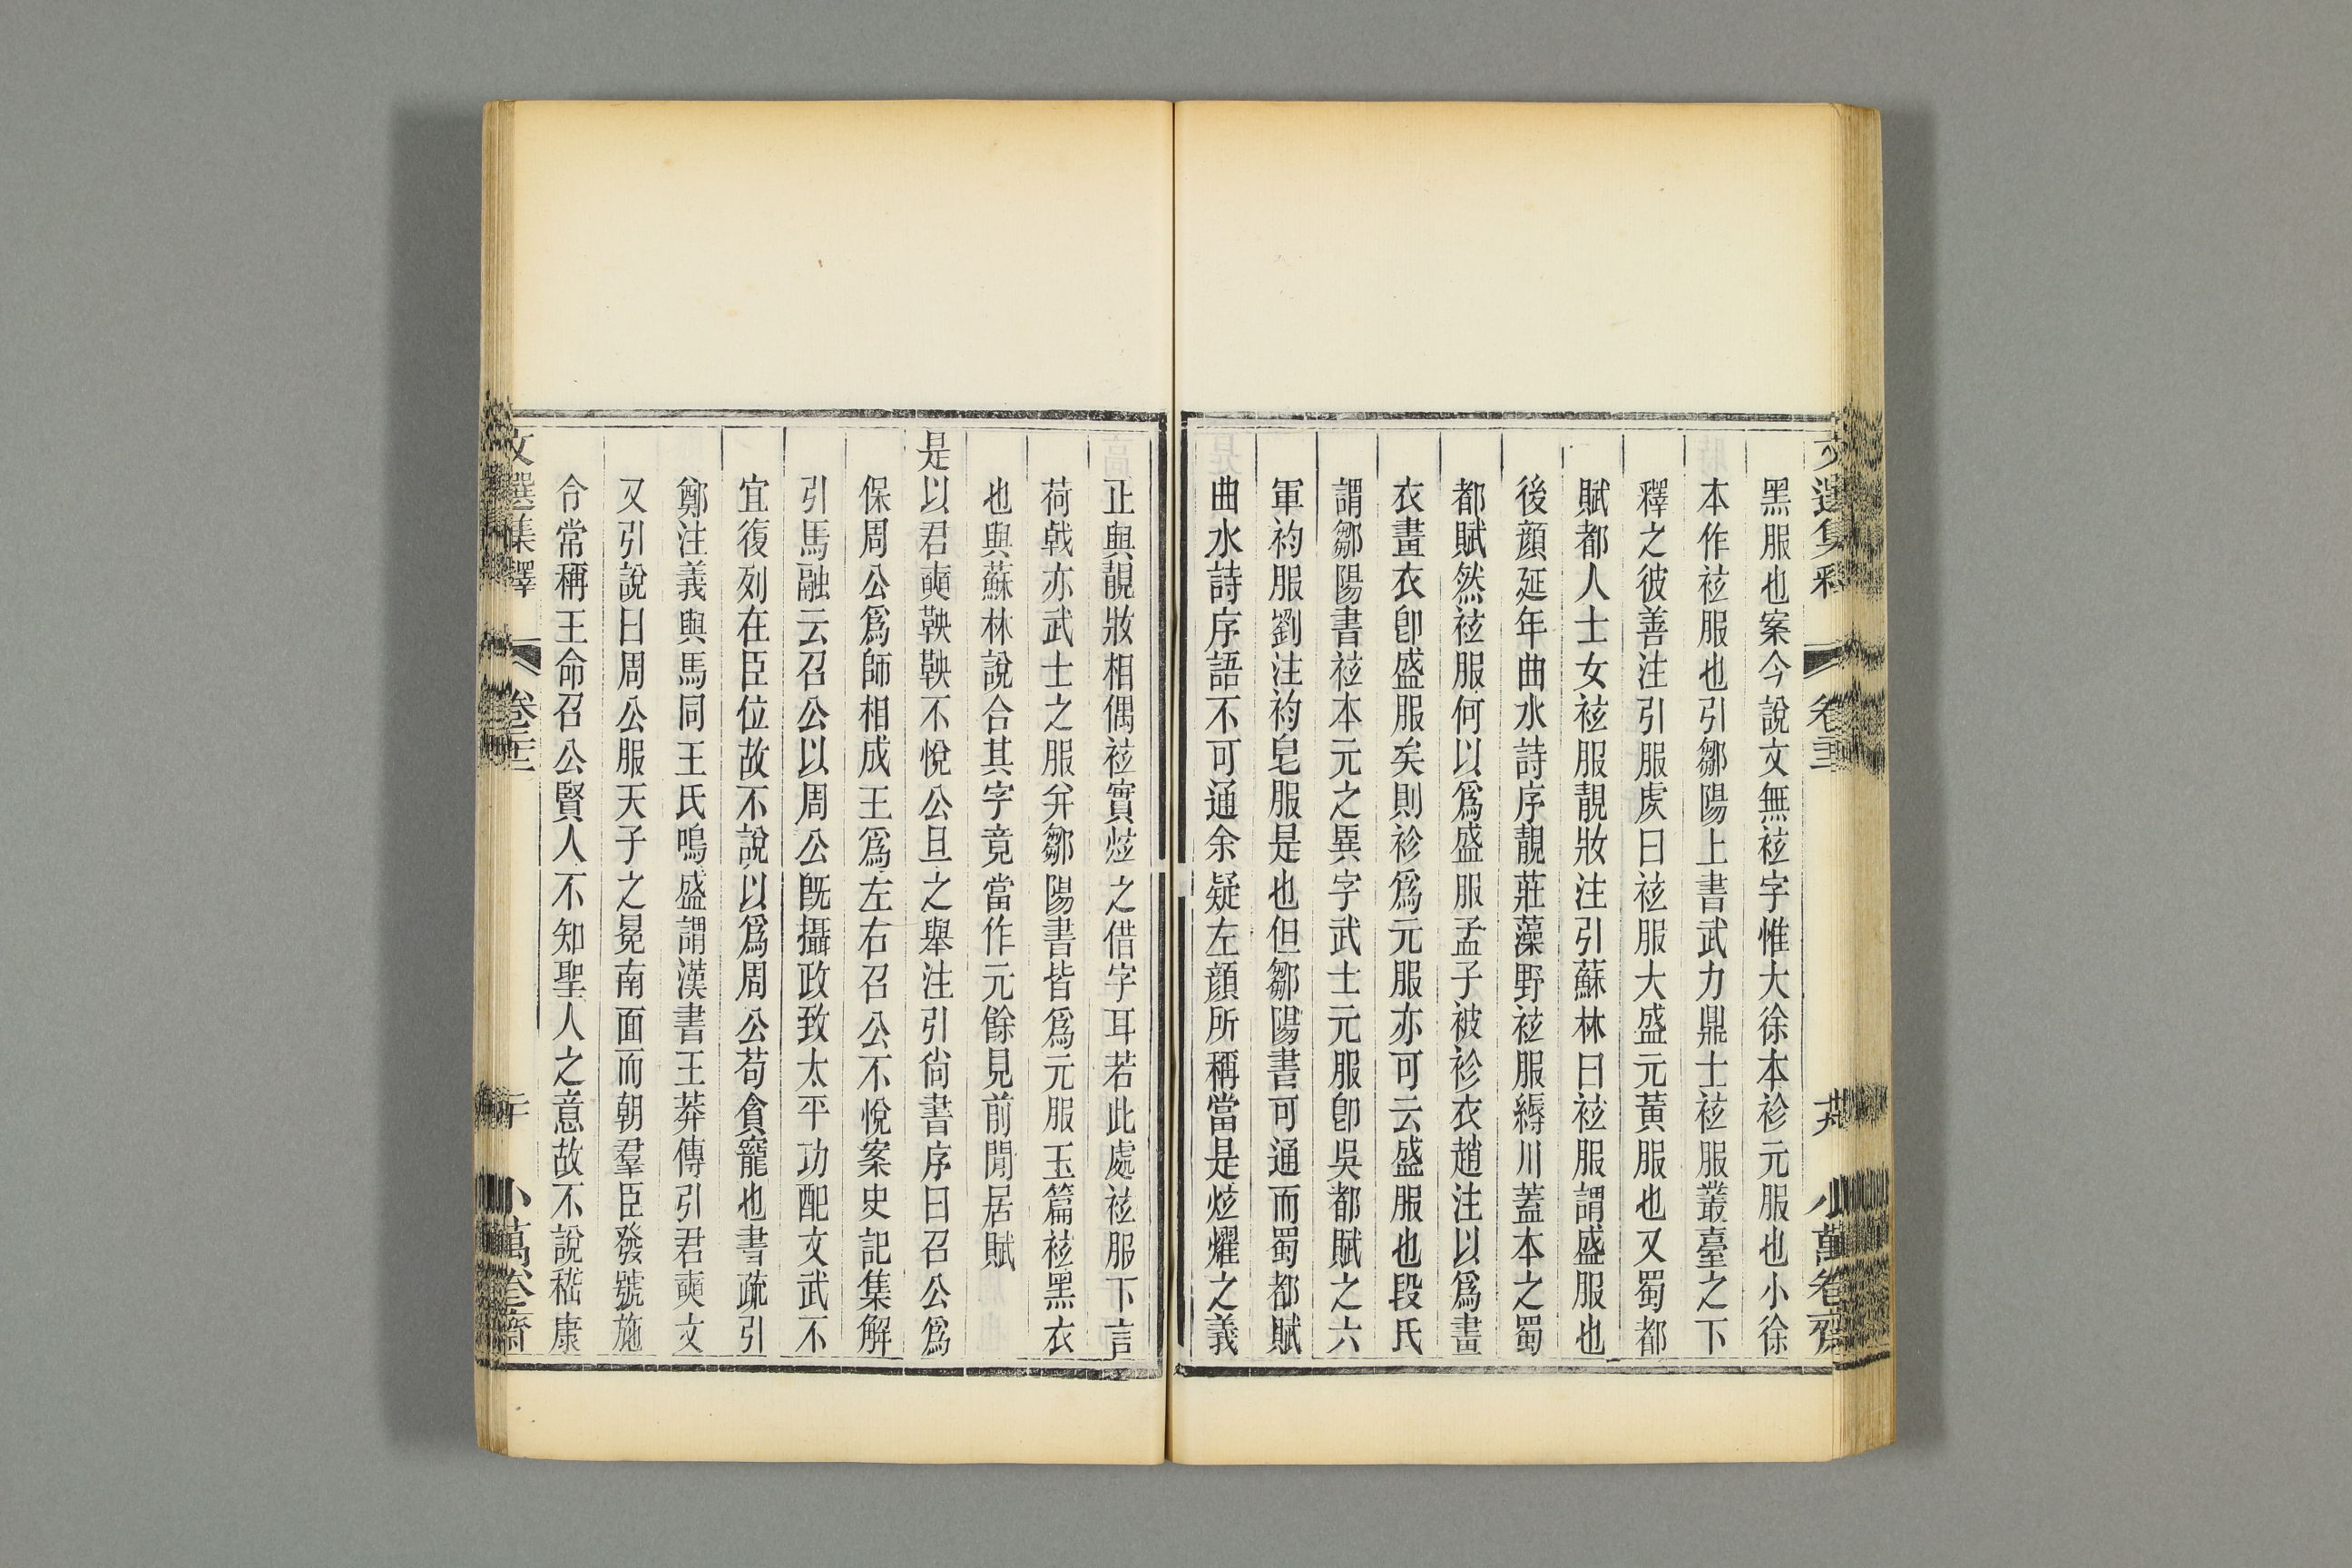 黑服也案今說文無袨字惟大徐本袗元服也小徐
本作袨服也引鄒陽上書武力鼎士袨服叢臺之下
釋之彼善注引服虔曰袨服大盛元黃服也又蜀都
賦都人士女袨服靚妝注引蘇林曰袨服謂盛服也
後顏延年曲水詩序靚莊藻野袨服縟川蓋本之蜀
都賦然袨服何以爲盛服孟子被袗衣趙注以爲畫
衣畫衣卽盛服矣則袗爲元服亦可云盛服也段氏
謂鄒陽書袨本元之異字武士元服卽吳都賦之六
軍袀服劉注袀皂服是也但鄒陽書可通而蜀都賦
曲水詩序語不可通余疑左顏所稱當是炫燿之義
正與靚妝相偶袨實炫之借字耳若此處袨服下言
荷戟亦武士之服幷鄒陽書皆爲元服玉篇袨黑衣
也與蘇林說合其字竟當作元餘見前閒居賦
是以君奭鞅鞅不悅公旦之舉注引尙書序曰召公爲
保周公爲師相成王爲左右召公不悅案史記集解
引馬融云召公以周公旣攝政致太平功配文武不
宜復列在臣位故不說以爲周公苟貪寵也書疏引
鄭注義與馬同王氏鳴盛謂漢書王莽傳引君奭文
又引說曰周公服天子之冕南面而朝羣臣發號施
令常稱王命召公賢人不知聖人之意故不說嵇康
文選集釋 卷二十三 小萬卷齋